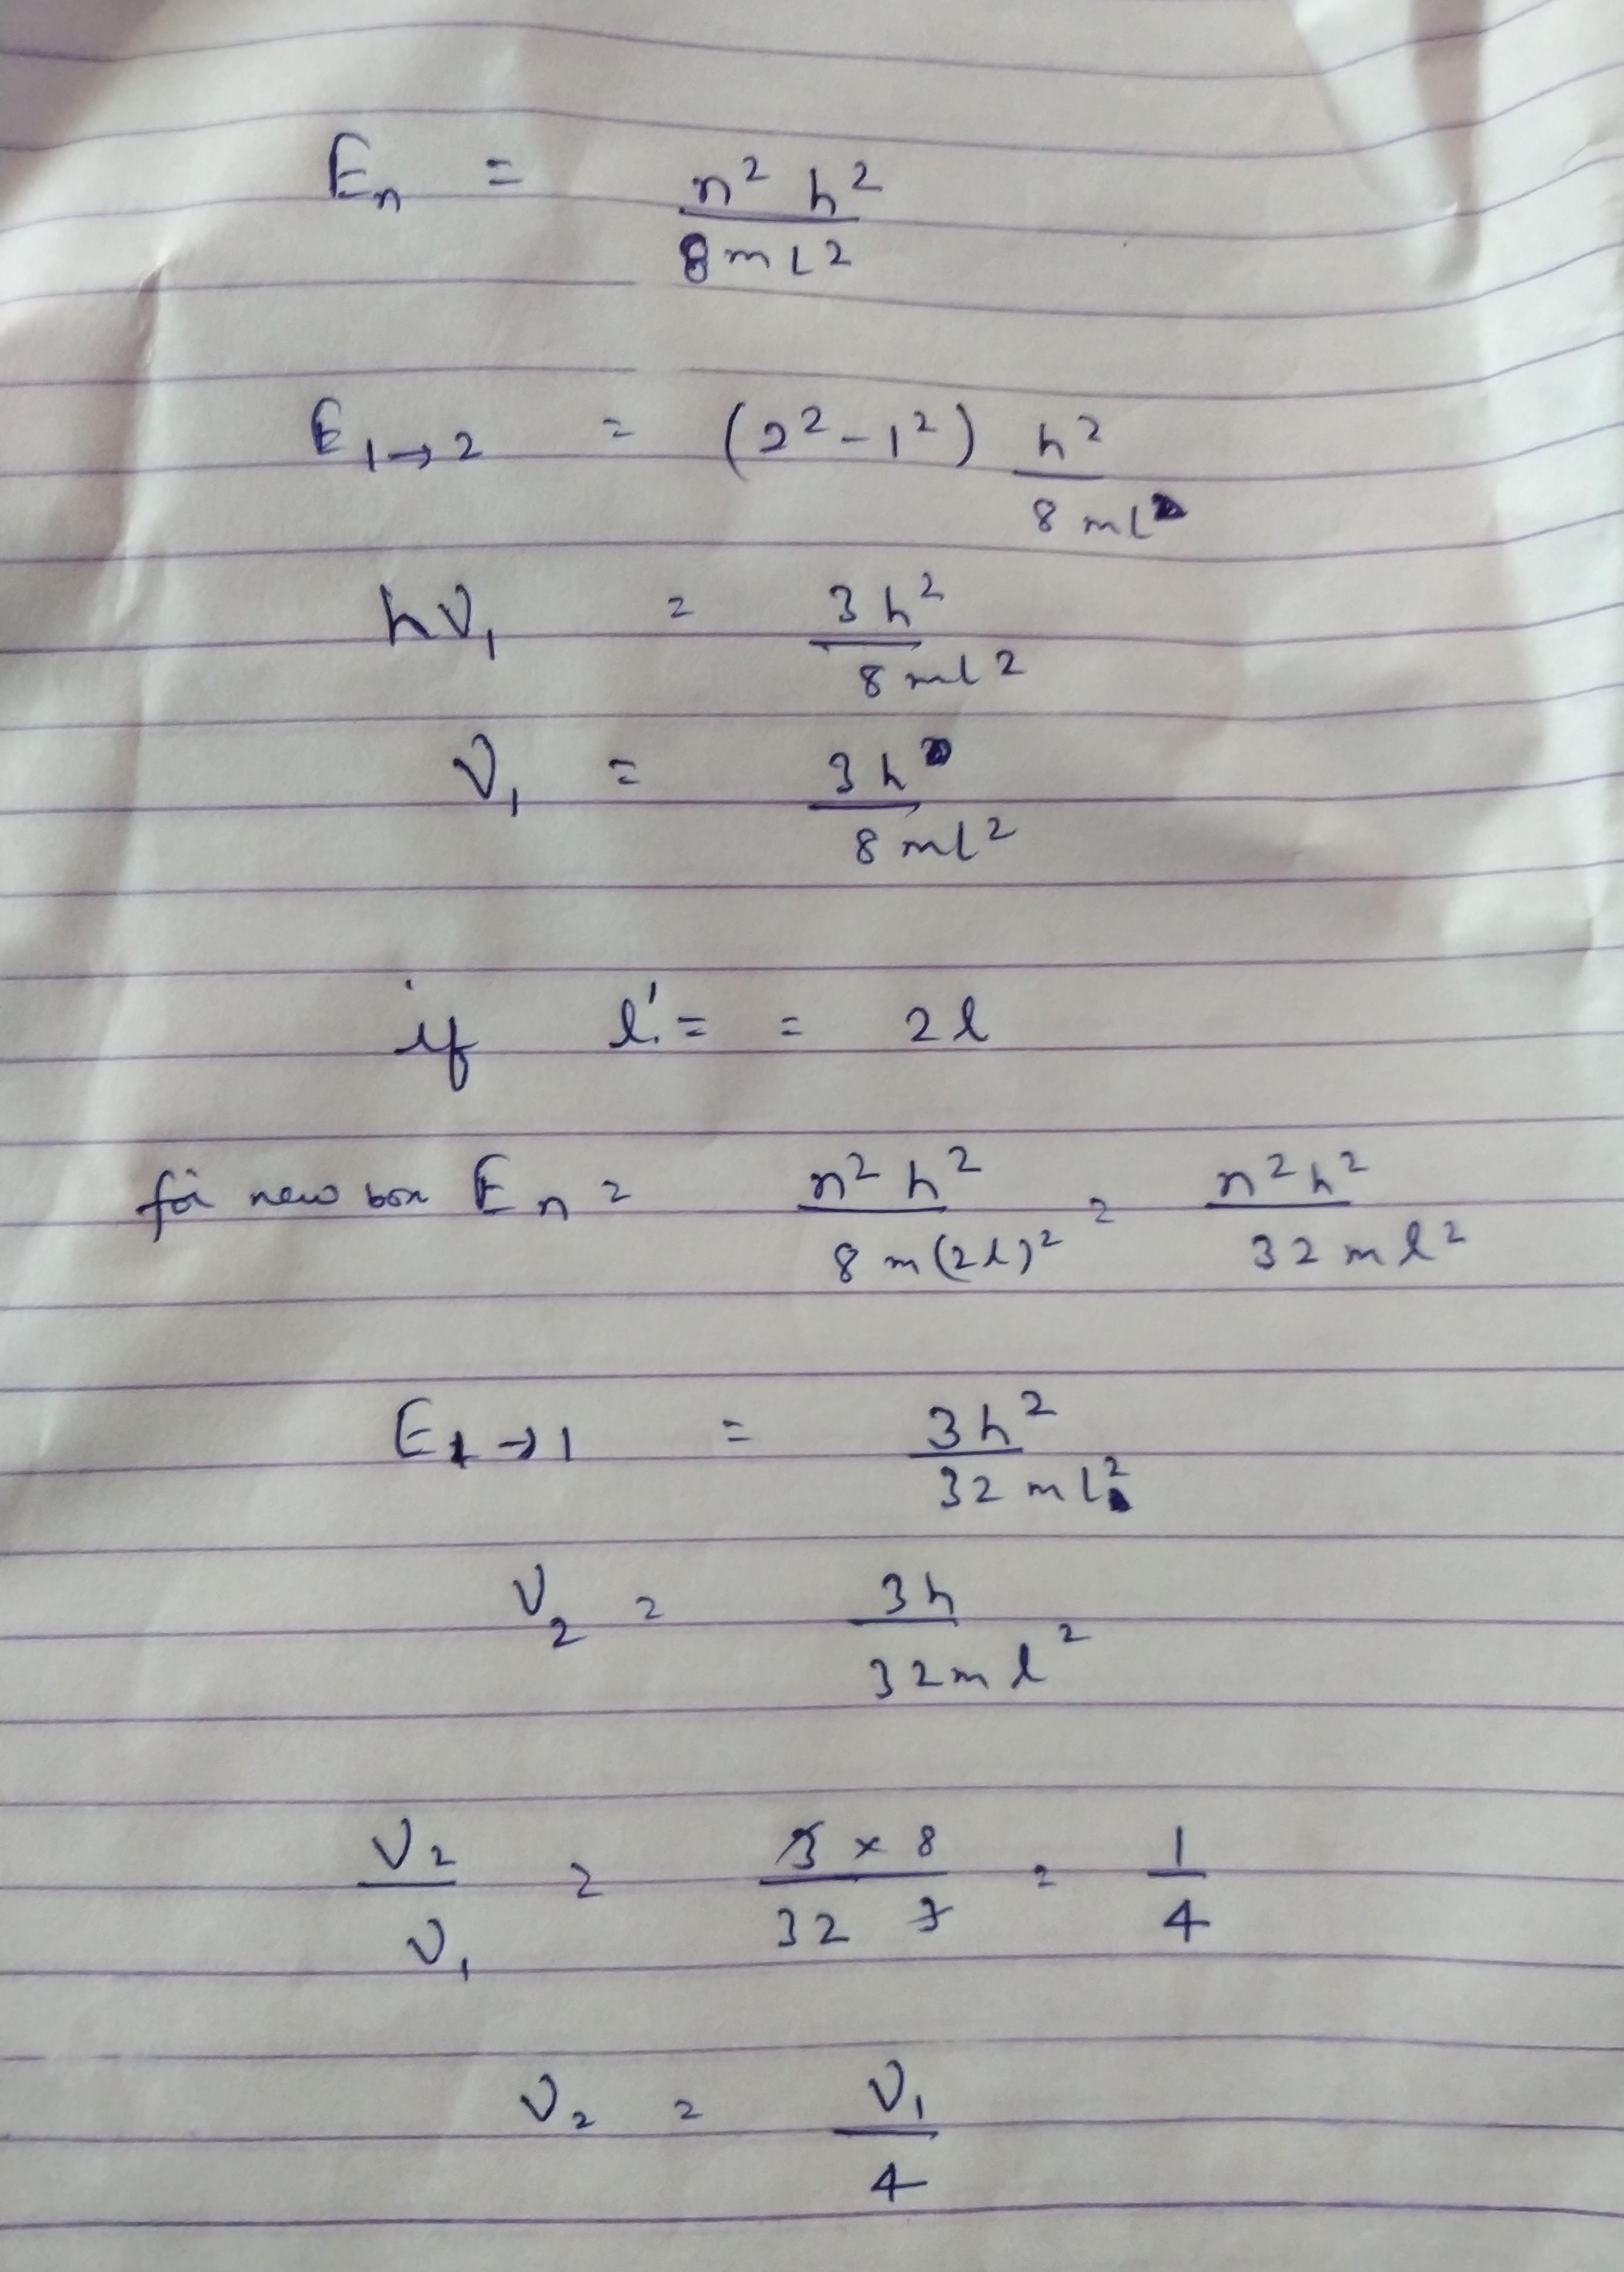 Eₙ = n² h² / 8mL²
E₁→₂ = (2² - 1²) h² / 8ml²
hν₁ = 3h² / 8ml²
ν₁ = 3h / 8ml²
if l' = = 2l
for new box Eₙ = n² h² / 8m(2l)² = n²h² / 32ml²
E₁→₁ = 3h² / 32ml²
ν₂ = 3h / 32ml²
ν₂ / ν₁ = 3 × 8 / 32 3 = 1 / 4
ν₂ = ν₁ / 4